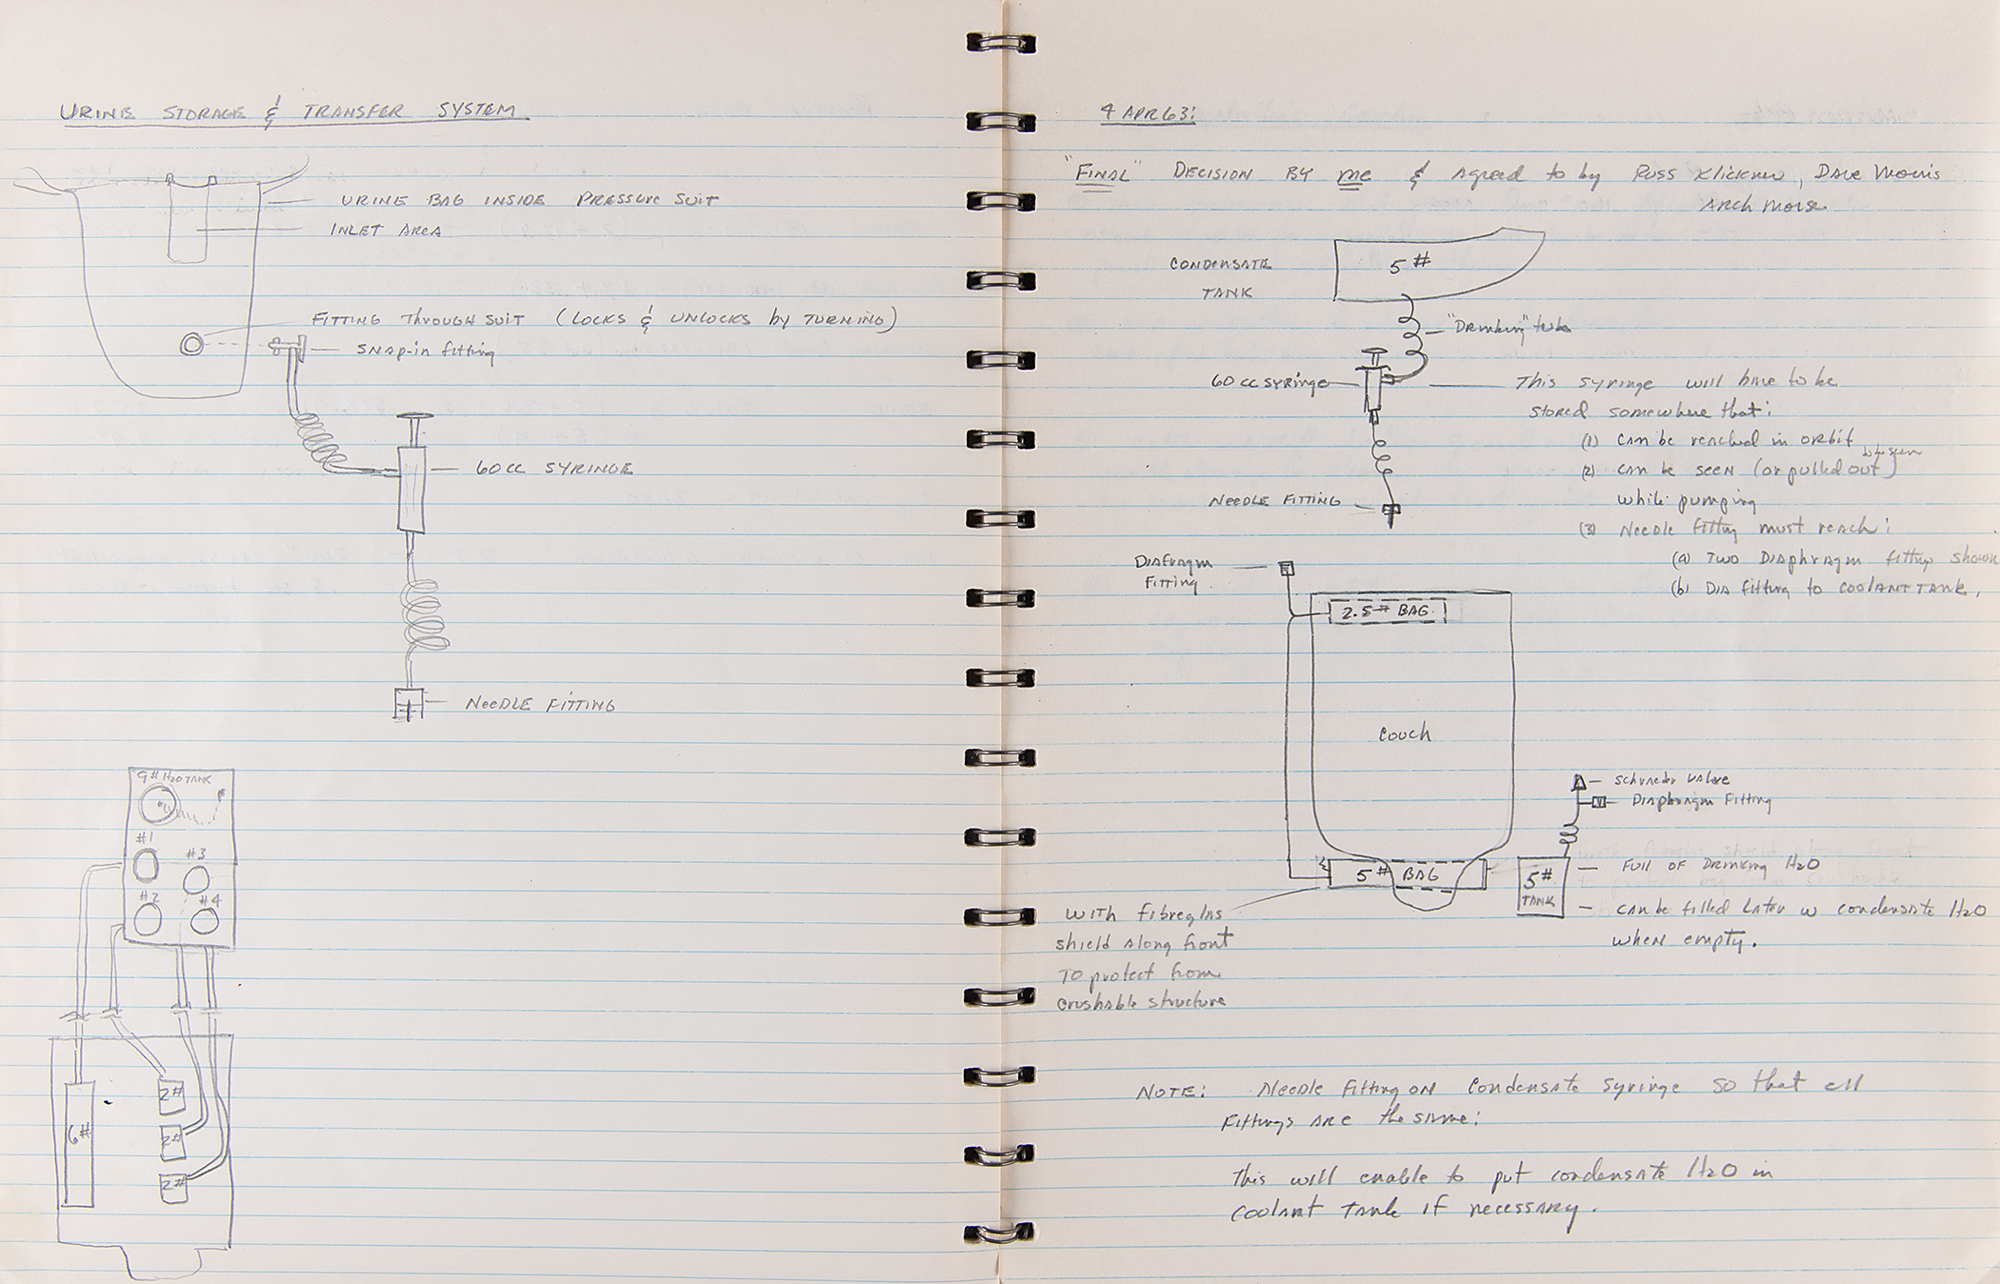 URINE STORAGE & TRANSFER SYSTEM
URINE BAG INSIDE PRESSURE SUIT
INLET AREA
FITTING THROUGH SUIT (LOCKS & UNLOCKS by TURNING)
SNAP-IN fitting
60CC SYRINGE
NEEDLE FITTING
9# H2O TANK
#1
#3
#2
#4
6#
2#
2#
2#
4 APR 63:
"FINAL" DECISION BY me & Agreed to by Russ Klickner, Dave Morris
Arch Morse
CONDENSATE
TANK
5#
"Drinking" tube
60 CC SYRINGE
This syringe will have to be
stored somewhere that:
(1) can be reached in orbit
(2) can be seen (or pulled out to be seen)
while pumping
(3) Needle fitting must reach:
(a) Two Diaphragm fittings shown
(b) Dia fitting to COOLANT TANK.
NEEDLE FITTING
Diafragm
Fitting
2.5# BAG
Couch
5# BAG
with fibreglas
shield along front
To protect from
crushable structure
Schrader Valve
Diaphragm Fitting
5#
TANK
Full of Drinking H2O
can be filled Later w condensate H2O
when empty.
NOTE: Needle fitting on condensate syringe so that all
fittings are the same:
This will enable to put condensate H2O in
coolant Tank if necessary.